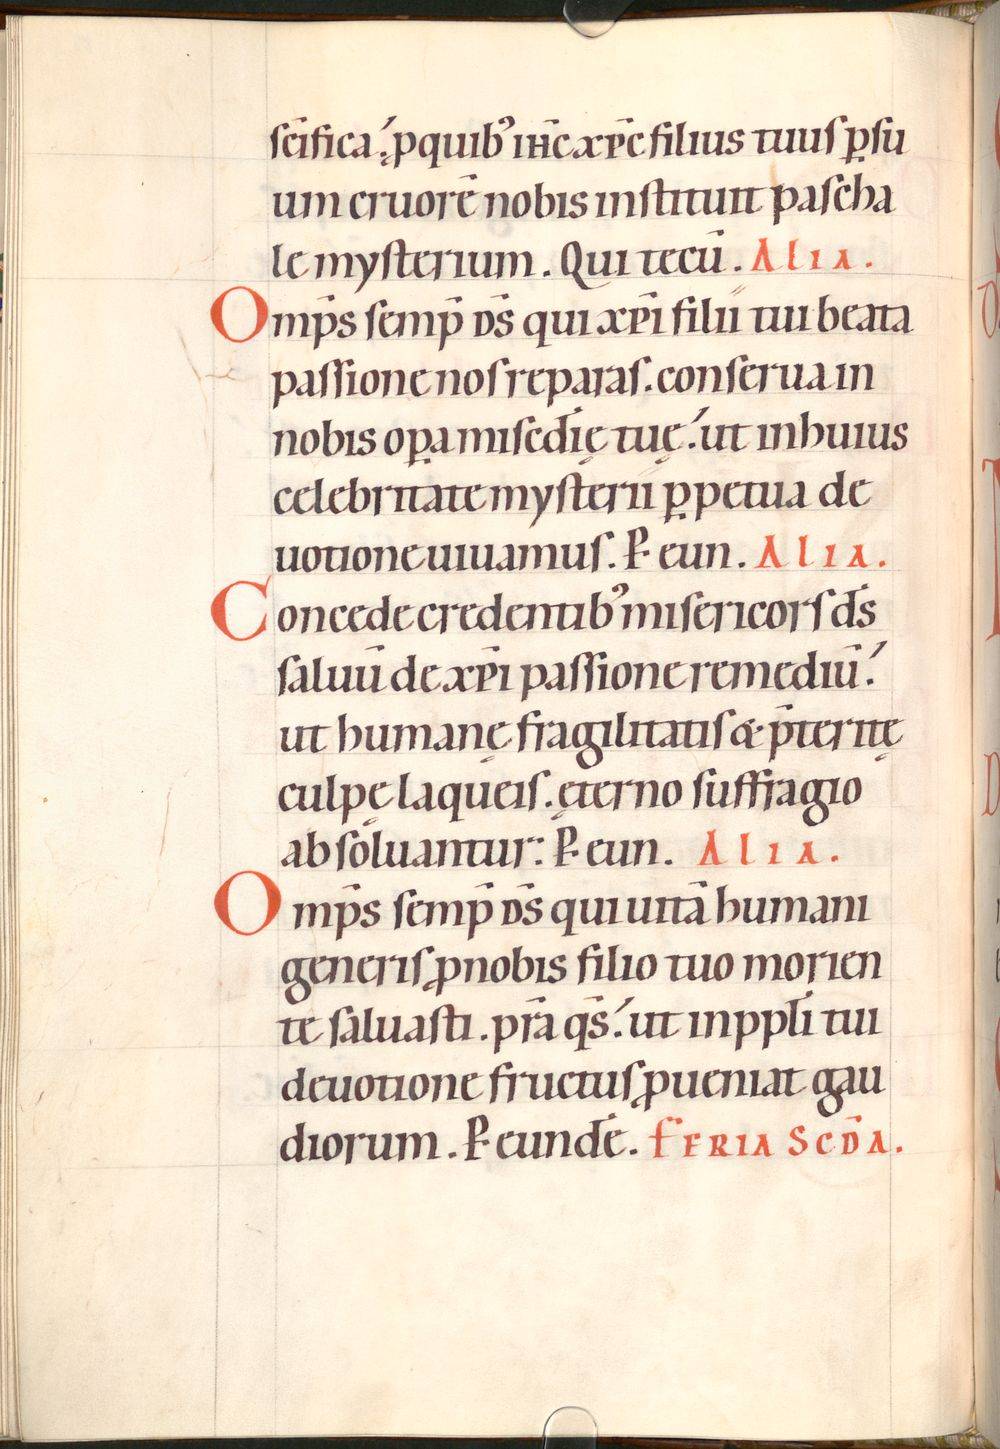 scīfica. ꝓ quib᾽ ihc̄ xp̄c filius tuuſ ꝑ ſu
um cruorē nobis inſtituit paſcha
le myſterium. Qui tecū. Alia.
Omp̄s ſemp̄ ds̄ qui xp̄i filii tui beata
paſſione noſ reparaſ. conſerua in
nobis oꝑa miſcd̄ię tuę. ut in huius
celebritate myſterii ꝑpetua de
uotione uiuamuſ. P eun. Alia.
Concede credentib᾽ miſericorſ ds̄
ſaluū de xp̄i paſſione remediū.
ut humanę fragilitatiſ & p̄teritę
culpę laqueiſ. ęterno ſuffragio
abſoluantur. P eun. Alia.
Omp̄s ſemp̄ ds̄ qui uitā humani
generiſ ꝓ nobis filio tuo morien
te ſaluaſti. pr̄a qs̄. ut in ppl̄i tui
deuotione fructuſ ꝓueniat gau
diorum. P eundē. FERIA SCDA.